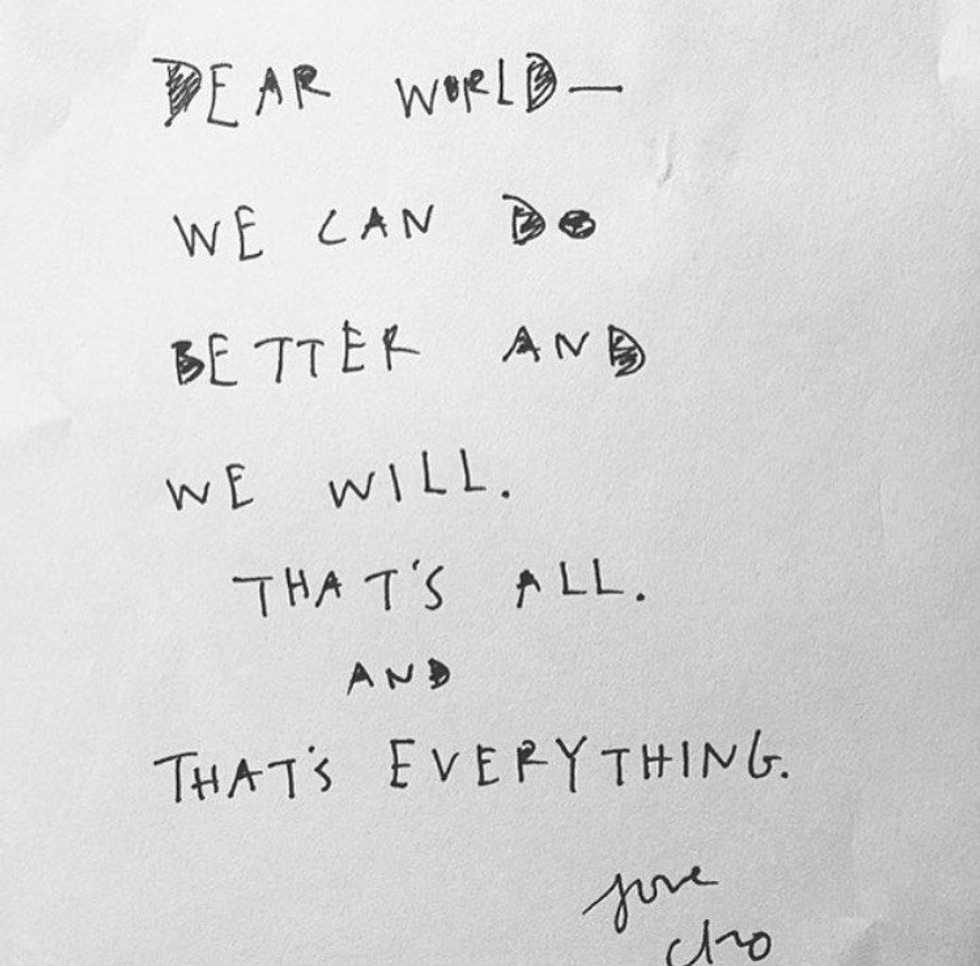 DEAR WORLD—
WE CAN DO
BETTER AND
WE WILL.
THAT'S ALL.
AND
THAT'S EVERYTHING.